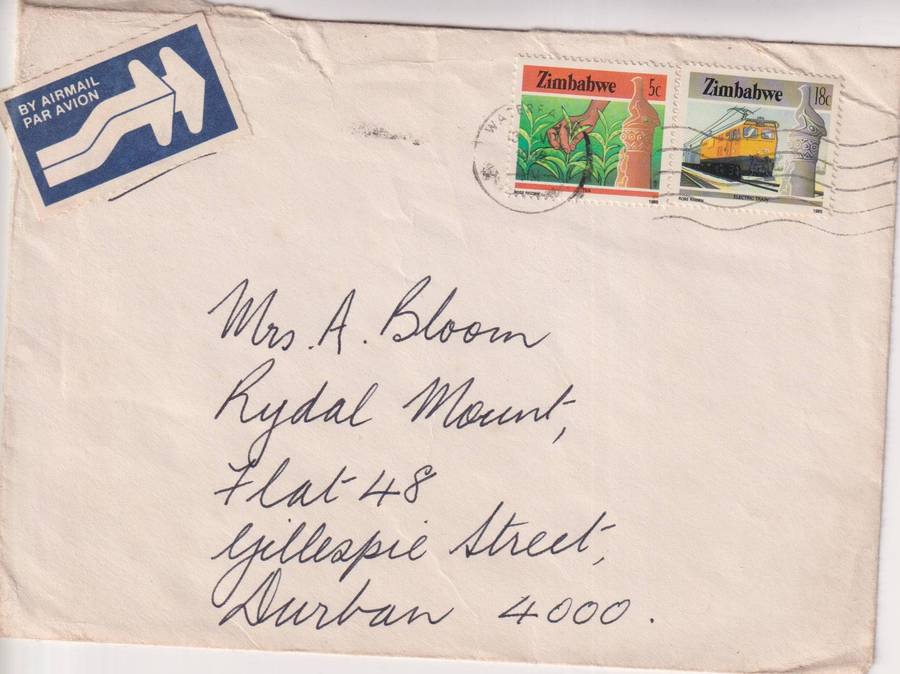 BY AIRMAIL
PAR AVION
Zimbabwe 5c
Zimbabwe 18c
TEA
ELECTRIC TRAIN
1985
Mrs. A. Bloom
Rydal Mount,
Flat 48
Gillespie Street,
Durban 4000.